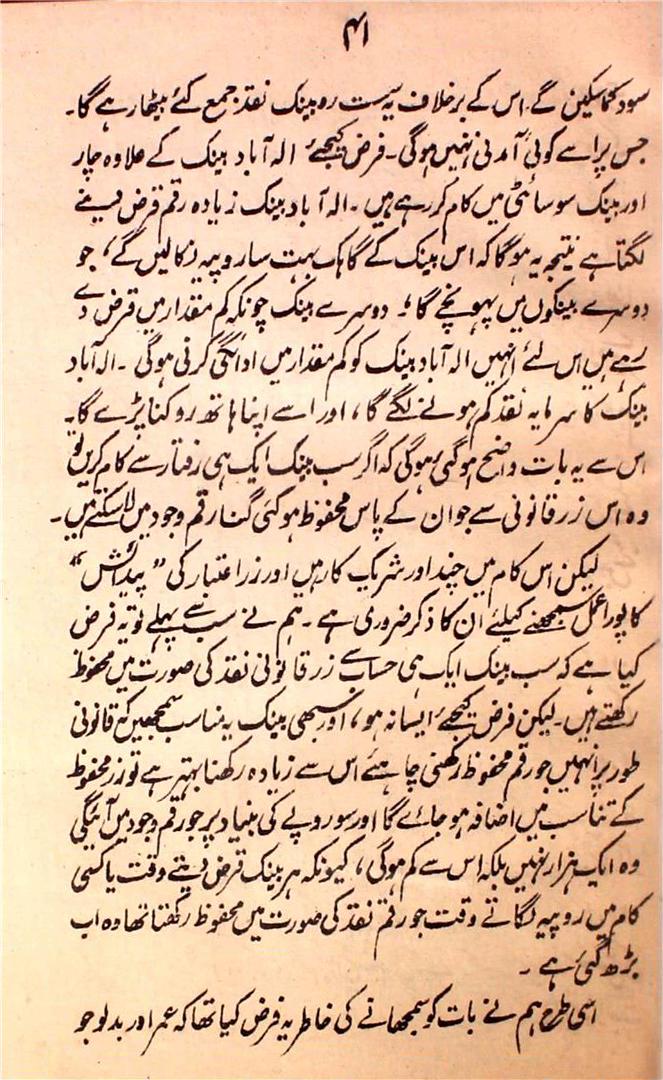 ۴۱
سود کما سکیں گے۔ اس کے برخلاف یہ سست رو بینک نقد جمع کئے بیٹھا رہے گا۔
جس پر اسے کوئی آمدنی نہیں ہوگی۔ فرض کیجئے الہ آباد بینک کے علاوہ چار
اور بینک سوسائٹی میں کام کر رہے ہیں۔ الہ آباد بینک زیادہ رقم قرض دینے
لگتا ہے نتیجہ یہ ہوگا کہ اس بینک کے گاہک بہت سا روپیہ نکالیں گے، جو
دوسرے بینکوں میں پہونچے گا۔ دوسرے بینک چونکہ کم مقدار میں قرض دے
رہے ہیں اس لئے انہیں الہ آباد بینک کو کم مقدار میں ادائگی کرنی ہوگی۔ الہ آباد
بینک کا سرمایہ نقد کم ہونے لگے گا، اور اسے اپنا ہاتھ روکنا پڑے گا۔
اس سے یہ بات واضح ہو گئی ہوگی کہ اگر سب بینک ایک ہی رفتار سے کام کریں تو
وہ اس زر قانونی سے جو ان کے پاس محفوظ ہو کئی گنا رقم وجود میں لا سکتے ہیں۔
لیکن اس کام میں چند اور شریک کار ہیں اور زر اعتبار کی ”پیدائش“
کا پورا عمل سمجھنے کیلئے ان کا ذکر ضروری ہے۔ ہم نے سب سے پہلے تو یہ فرض
کیا ہے کہ سب بینک ایک ہی حساب سے زر قانونی نقد کی صورت میں محفوظ
رکھتے ہیں۔ لیکن فرض کیجئے ایسا نہ ہو، اور سبھی بینک یہ مناسب سمجھیں کہ قانونی
طور پر انہیں جو رقم محفوظ رکھنی چاہئے اس سے زیادہ رکھنا بہتر ہے تو زر محفوظ
کے تناسب میں اضافہ ہو جائے گا اور سو روپے کی بنیاد پر جو رقم وجود میں آئیگی
وہ ایک ہزار نہیں بلکہ اس سے کم ہوگی، کیونکہ ہر بینک قرض دیتے وقت یا کسی
کام میں روپیہ لگاتے وقت جو رقم نقد کی صورت میں محفوظ رکھتا تھا وہ اب
بڑھ گئی ہے۔
اسی طرح ہم نے بات کو سمجھانے کی خاطر یہ فرض کیا تھا کہ عمر اور بدلو جو